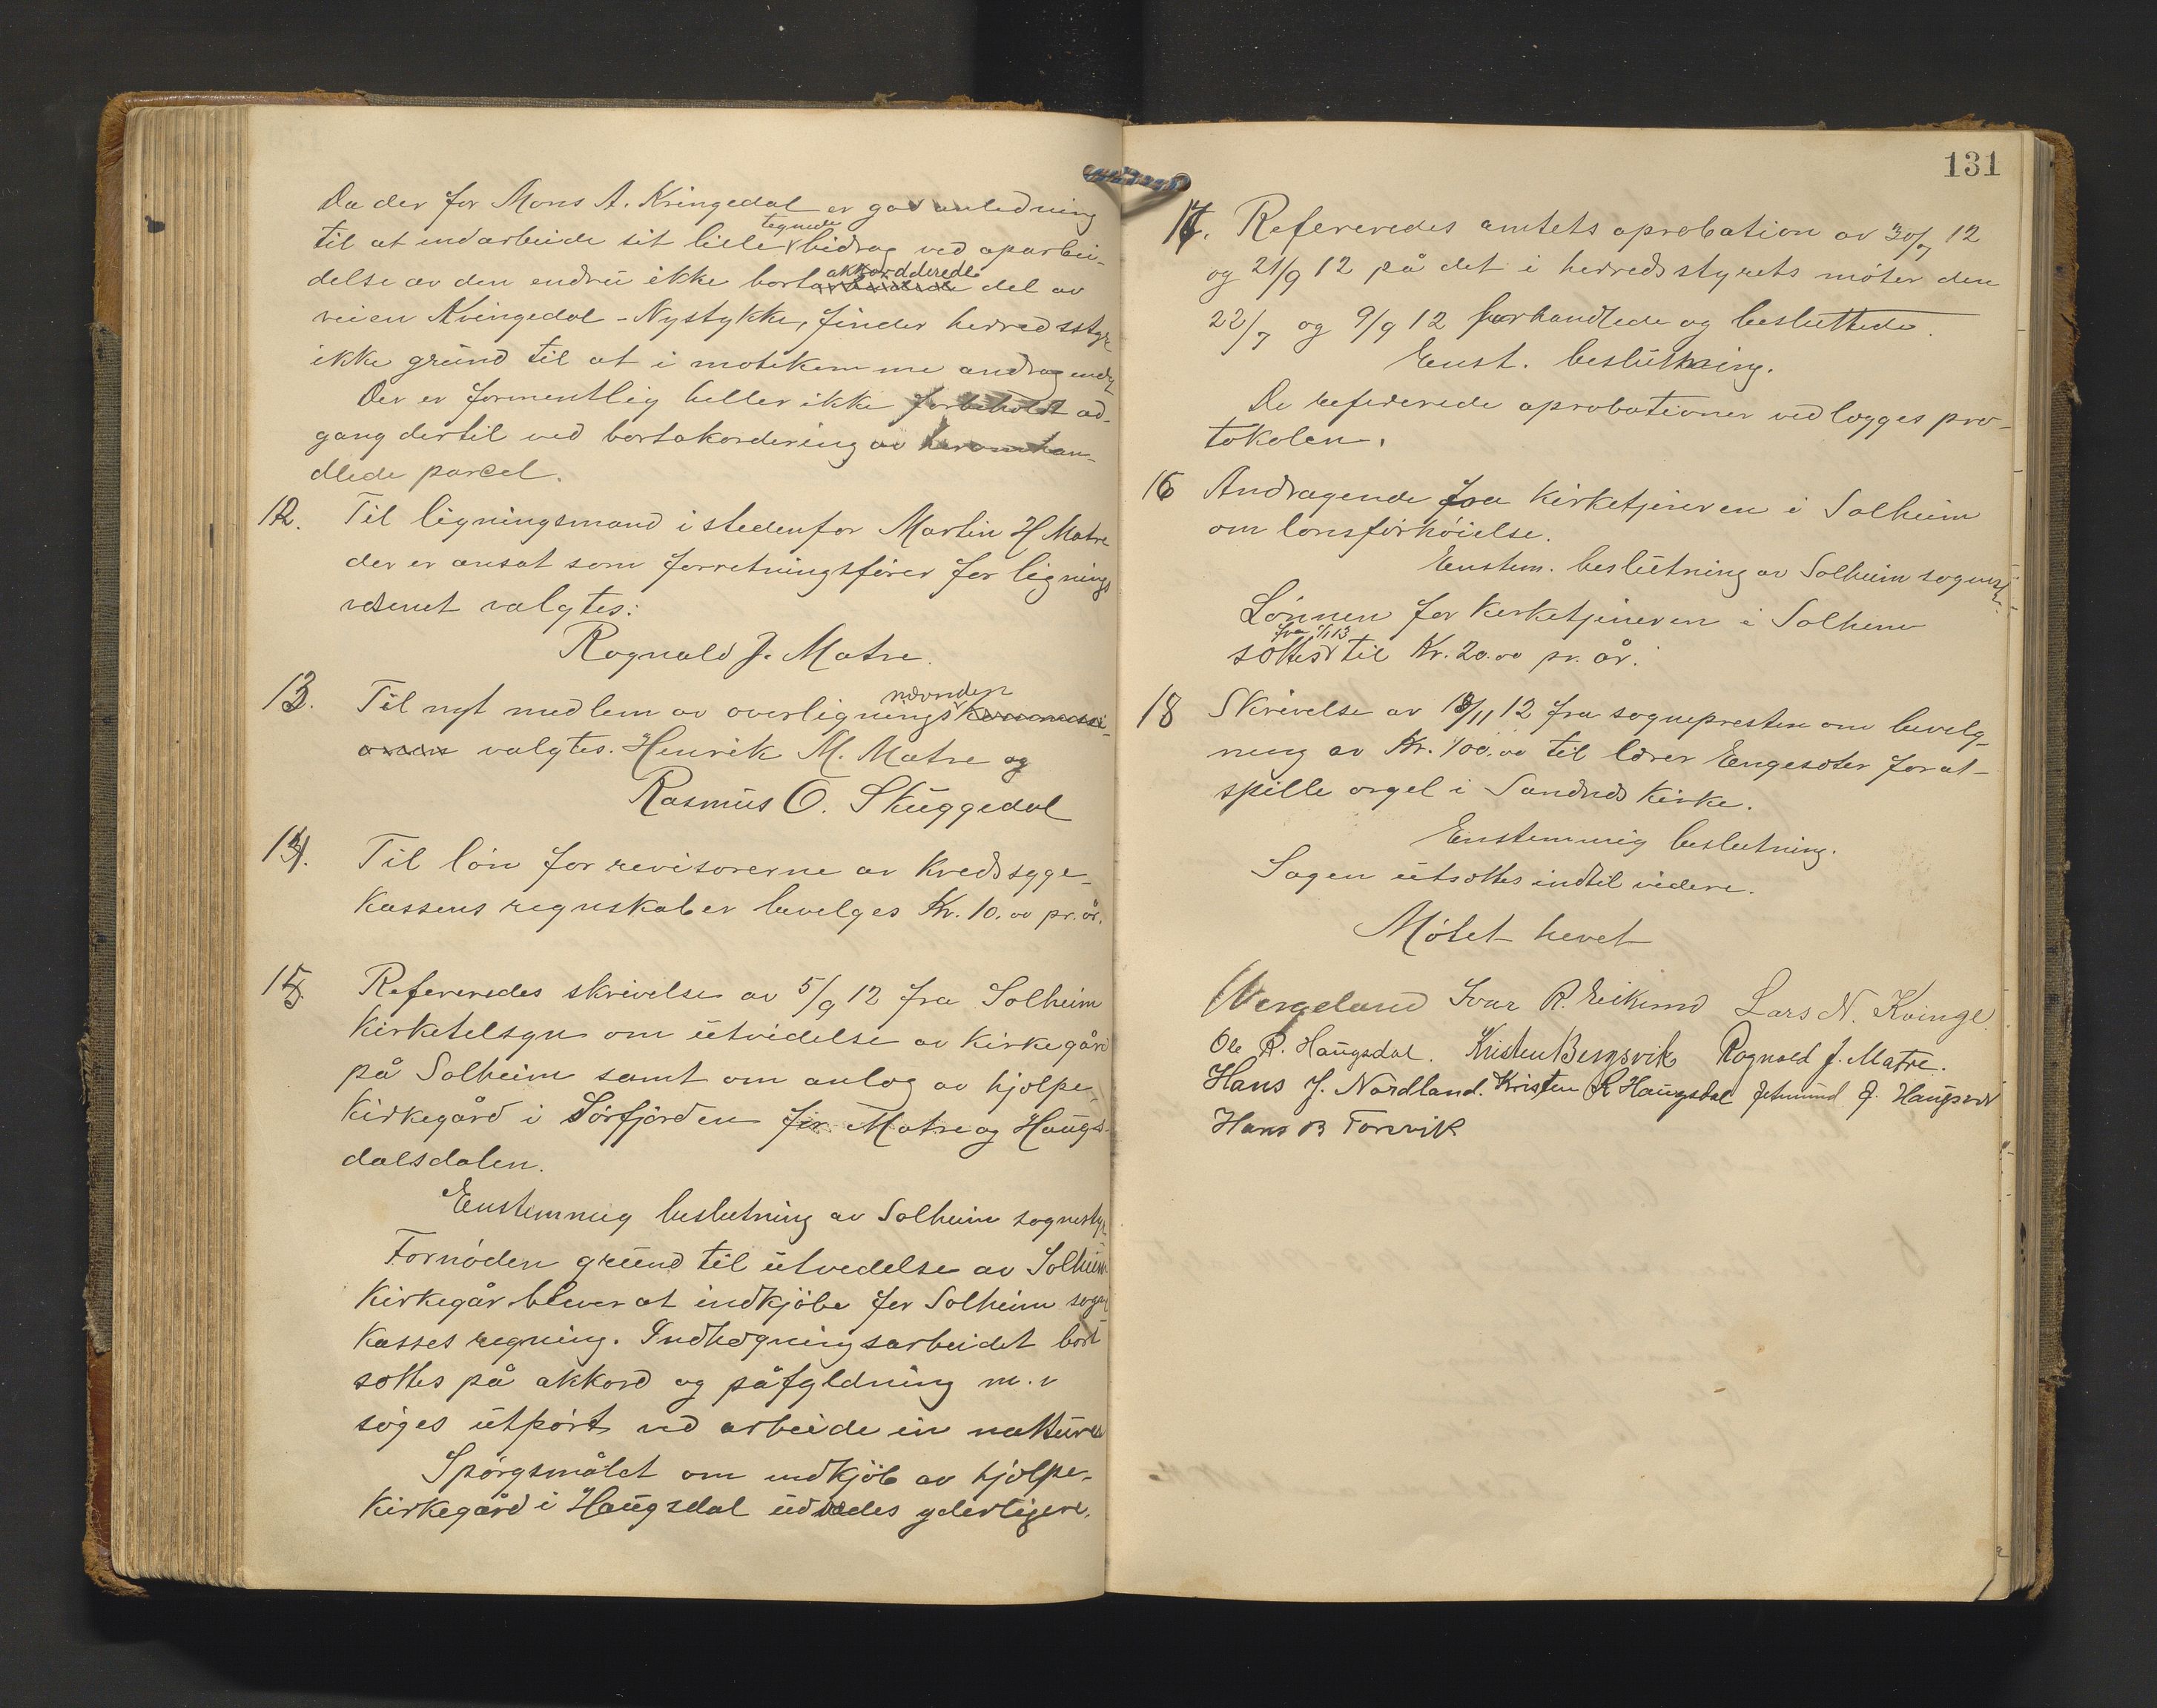 Da der for Mons A. Kringedal er god anledning
til at indarbeide sit lille tegnede bidrag ved oparbei-
delse av den endnu ikke bortakkordderede del av
veien Kvingedal - Nystykke, finder herredsstyr
ikke grund til at imøtekomme andragendet
Der er formentlig heller ikke forbeholdt ad-
gang dertil ved bortakordering av heromhan-
dlede parcel.
12. Til ligningsmand istedenfor Martin H Matre
der er ansat som forretningsfører for lignings
vesenet valgtes:
Ragnald J. Matre.
13. Til nyt medlem av overligningsnævnden
valgtes. Henrik M. Matre og
Rasmus O. Skuggedal
14. Til løn for revisorerne av kredssyge-
kassens regnskaber bevelges Kr. 10.00 pr. år.
15. Refereredes skrivelse av 5/9 12 fra Solheim
kirketilsyn om utvidelse av kirkegård
på Solheim samt om anlæg av hjælpe-
kirkegård i Sørfjorden for Matre og Haugs-
dalsdalen.
Enstemmig beslutning av Solheim sognestyr
Fornøden grund til utvidelse av Solheim
kirkegår blever at indkjøbe for Solheim sogne
kasses regning. Indhegningsarbeidet bort
sættes på akkord og påfyldning m. v
søges utført ved arbeide in natura
Spørgsmålet om indkjøb av hjælpe-
kirkegård i Haugsdal udredes yderligere.
131
17. Refereredes amtets aprobation av 30/7 12
og 21/9 12 på det i herredsstyrets møter den
22/7 og 9/9 12 forhandlede og besluttede.
Enst. beslutning.
De refererede aprobationer vedlægges pro-
tokolen.
16 Andragende fra kirketjeneren i Solheim
om lønsforhøielse.
Enstem. beslutning av Solheim sognest.
Lønnen for kirketjeneren i Solheim
sættes fra 1/1 13 til Kr. 20.00 pr. år.
18 Skrivelse av 18/11 12 fra sognepresten om bevelg-
ning av Kr. 100.00 til lærer Engesæter for at
spille orgel i Sandnes kirke.
Enstemmig beslutning.
Sagen utsættes indtil videre.
Møtet hevet
Wergeland Ivar R. Eikemo Lars N. Kvinge
Ole R. Haugsdal. Kristen Bergsvik Ragnald J. Matre.
Hans J. Nordland. Kristen R Haugsdal Jetmund J. Haugsvær
Hans B Torsvik